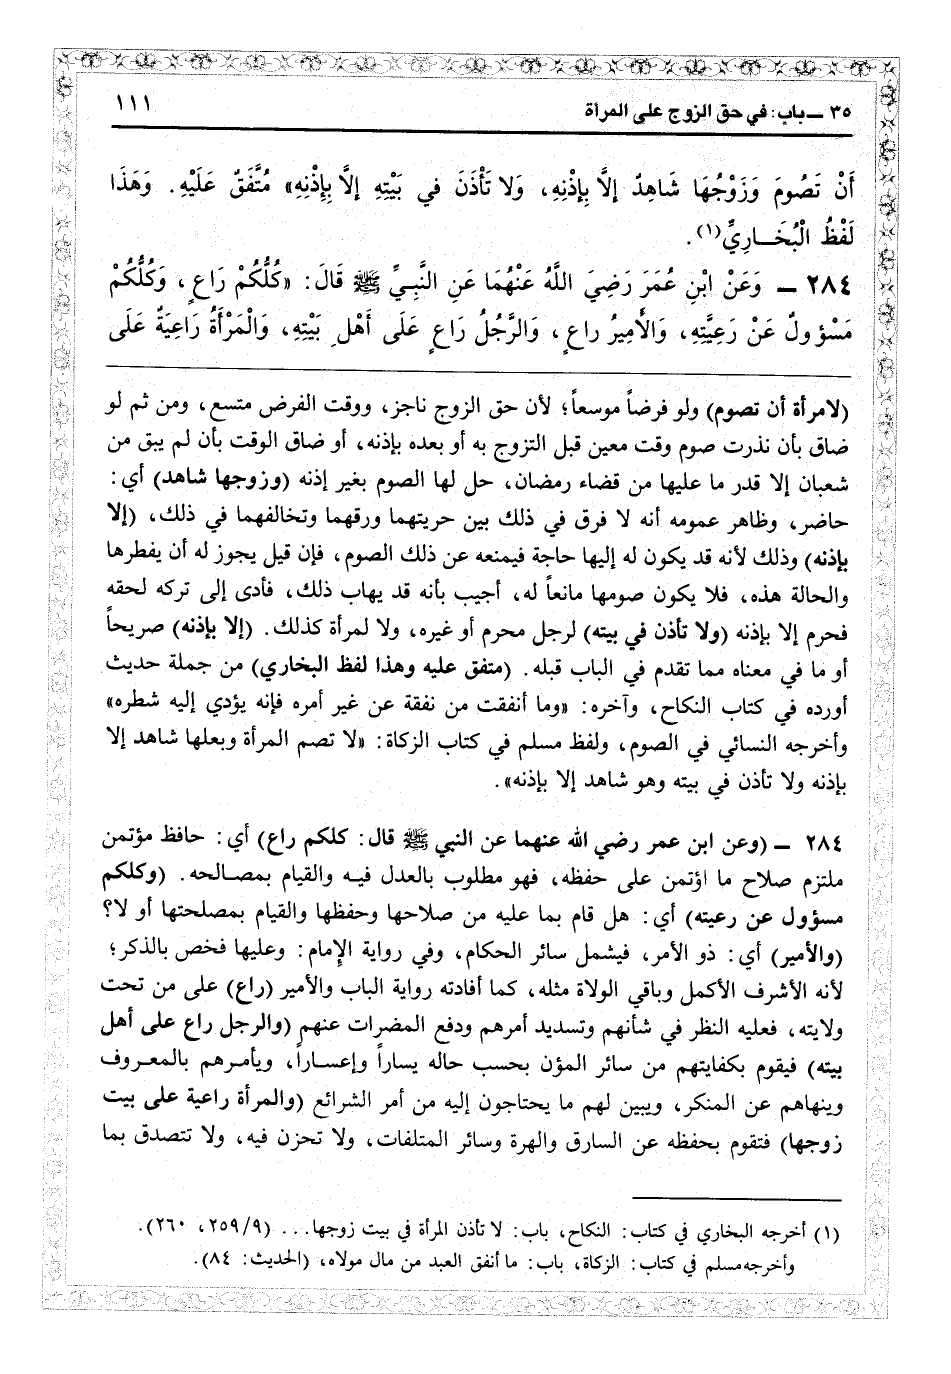 ٣٥ ــ باب: في حق الزوج على المرأة ١١١
أَنْ تَصُومَ وَزَوْجُهَا شَاهِدٌ إِلَّا بِإِذْنِهِ، وَلا تَأْذَنَ في بَيْتِهِ إِلَّا بِإِذْنِهِ» مُتَّفَقٌ عَلَيْهِ. وَهَذَا
لَفْظُ الْبُخَـارِيِّ(١).
٢٨٤ ــ وَعَنْ ابْنِ عُمَرَ رَضِيَ اللَّهُ عَنْهُمَا عَنِ النَّبِـيِّ ﷺ قَالَ: «كُلُّكُمْ رَاعٍ، وَكُلُّكُمْ
مَسْؤُولٌ عَنْ رَعِيَّتِهِ، وَالأَمِيرُ رَاعٍ، وَالرَّجُلُ رَاعٍ عَلَى أَهْلِ بَيْتِهِ، وَالْمَرْأَةُ رَاعِيَةٌ عَلَى
(لامرأة أن تصوم) ولو فرضاً موسعاً؛ لأن حق الزوج ناجز، ووقت الفرض متسع، ومن ثم لو
ضاق بأن نذرت صوم وقت معين قبل التزوج به أو بعده بإذنه، أو ضاق الوقت بأن لم يبق من
شعبان إلا قدر ما عليها من قضاء رمضان، حل لها الصوم بغير إذنه (وزوجها شاهد) أي:
حاضر، وظاهر عمومه أنه لا فرق في ذلك بين حريتهما ورقهما وتخالفهما في ذلك، (إلا
بإذنه) وذلك لأنه قد يكون له إليها حاجة فيمنعه عن ذلك الصوم، فإن قيل يجوز له أن يفطرها
والحالة هذه، فلا يكون صومها مانعاً له، أجيب بأنه قد يهاب ذلك، فأدى إلى تركه لحقه
فحرم إلا بإذنه (ولا تأذن في بيته) لرجل محرم أو غيره، ولا لمرأة كذلك. (إلا بإذنه) صريحاً
أو ما في معناه مما تقدم في الباب قبله. (متفق عليه وهذا لفظ البخاري) من جملة حديث
أورده في كتاب النكاح، وآخره: «وما أنفقت من نفقة عن غير أمره فإنه يؤدي إليه شطره»
وأخرجه النسائي في الصوم، ولفظ مسلم في كتاب الزكاة: «لا تصم المرأة وبعلها شاهد إلا
بإذنه ولا تأذن في بيته وهو شاهد إلا بإذنه».
٢٨٤ ــ (وعن ابن عمر رضي الله عنهما عن النبي ﷺ قال: كلكم راع) أي: حافظ مؤتمن
ملتزم صلاح ما اؤتمن على حفظه، فهو مطلوب بالعدل فيه والقيام بمصـالحه. (وكلكم
مسؤول عن رعيته) أي: هل قام بما عليه من صلاحها وحفظها والقيام بمصلحتها أو لا؟
(والأمير) أي: ذو الأمر، فيشمل سائر الحكام، وفي رواية الإمام: وعليها فخص بالذكر؛
لأنه الأشرف الأكمل وباقي الولاة مثله، كما أفادته رواية الباب والأمير (راع) على من تحت
ولايته، فعليه النظر في شأنهم وتسديد أمرهم ودفع المضرات عنهم (والرجل راع على أهل
بيته) فيقوم بكفايتهم من سائر المؤن بحسب حاله يساراً وإعساراً، ويأمرهم بالمعروف
وينهاهم عن المنكر، ويبين لهم ما يحتاجون إليه من أمر الشرائع (والمرأة راعية على بيت
زوجها) فتقوم بحفظه عن السارق والهرة وسائر المتلفات، ولا تحزن فيه، ولا تتصدق بما
(١) أخرجه البخاري في كتاب: النكاح، باب: لا تأذن المرأة في بيت زوجها... (٢٥٩/٩، ٢٦٠).
وأخرجه مسلم في كتاب: الزكاة، باب: ما أنفق العبد من مال مولاه، (الحديث: ٨٤).